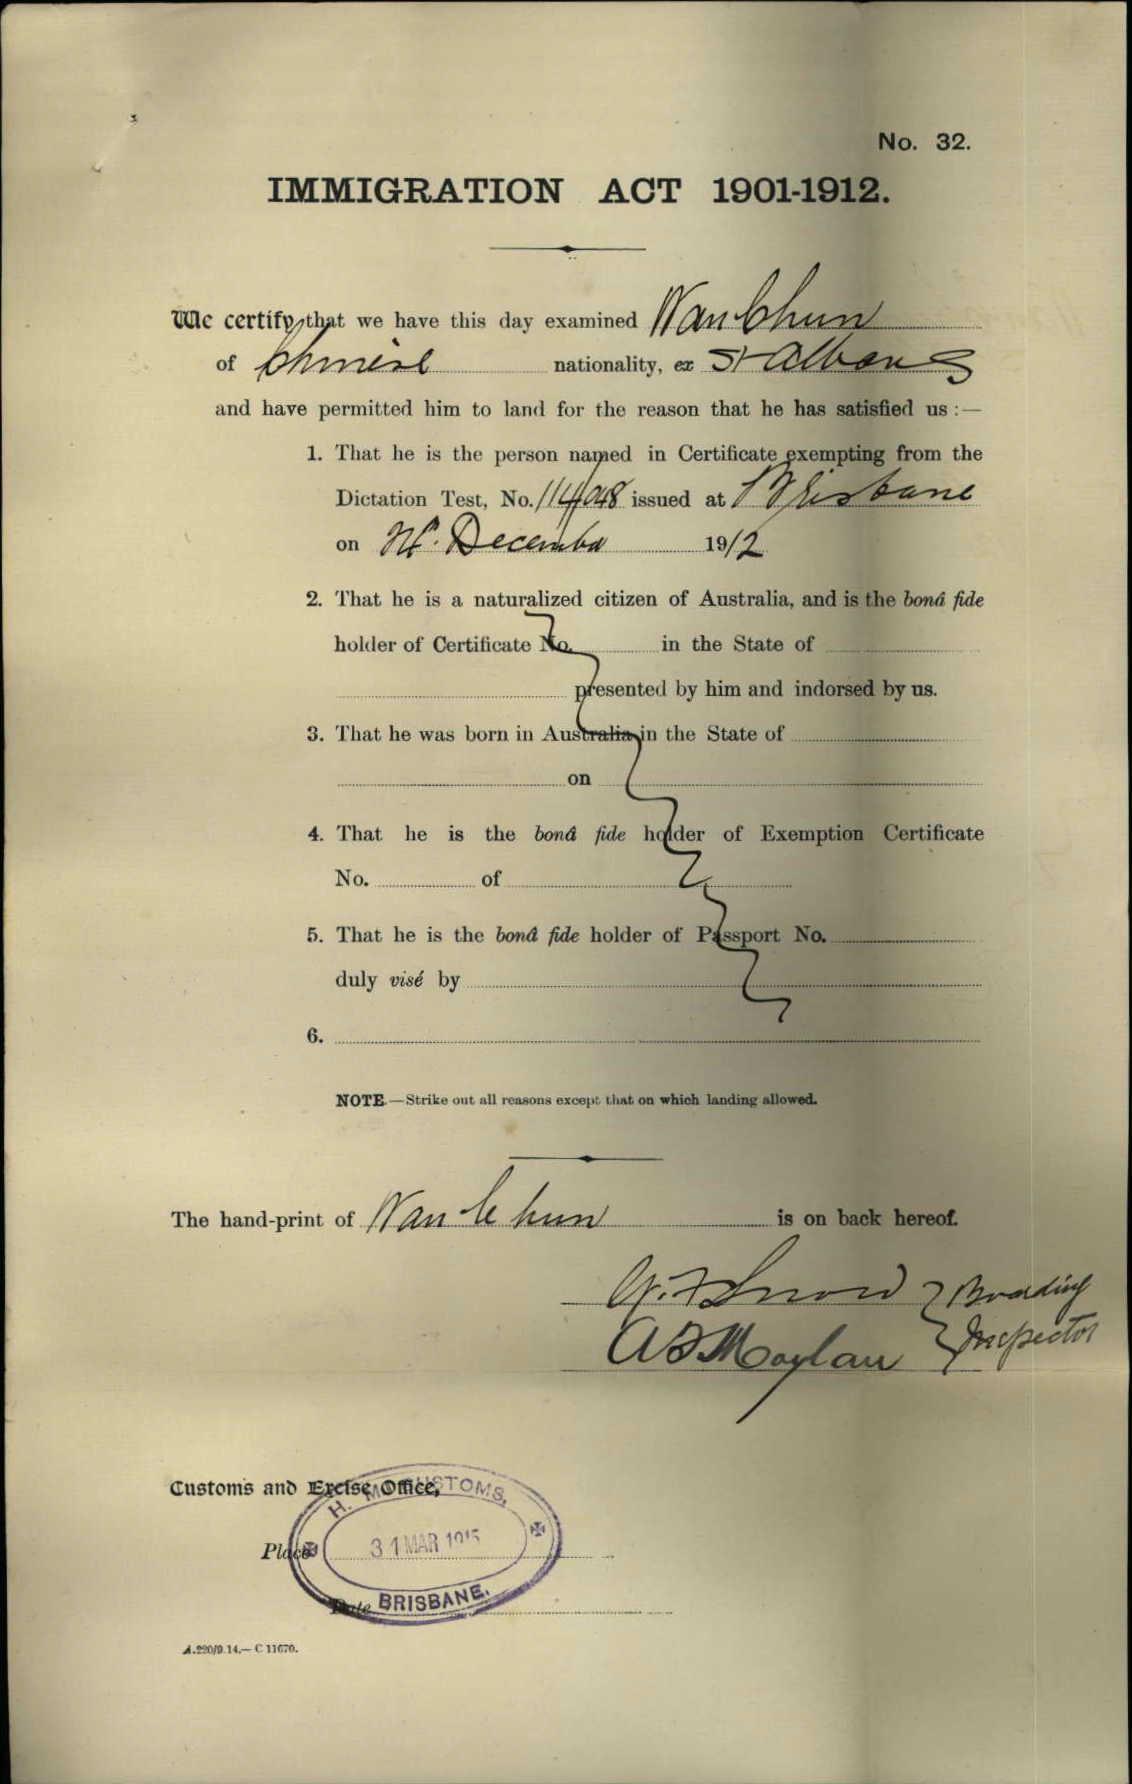 No. 32.
IMMIGRATION ACT 1901-1912.
We certify that we have this day examined Wan Chun
of Chinese nationality, ex St Albans
and have permitted him to land for the reason that he has satisfied us :—
1. That he is the person named in Certificate exempting from the
Dictation Test, No. issued at Brisbane
on December 1912
2. That he is a naturalized citizen of Australia, and is the bonâ fide
holder of Certificate No. in the State of
presented by him and indorsed by us.
3. That he was born in Australia in the State of
on
4. That he is the bonâ fide holder of Exemption Certificate
No. of
5. That he is the bonâ fide holder of Passport No.
duly visé by
6.
NOTE.—Strike out all reasons except that on which landing allowed.
The hand-print of Wan Chun is on back hereof.
Snow } Boarding
Moylan } Inspector
Customs and Excise Office,
H. M. CUSTOMS,
Place
31 MAR 1915
Date
BRISBANE.
A.220/9.14.—C 11670.